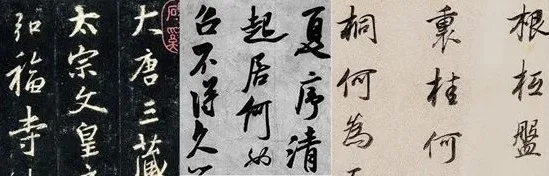 大唐三藏
太宗文皇
弘福寺
夏序清
起居何如
台不得久
根柢盤
裏桂何
桐何為